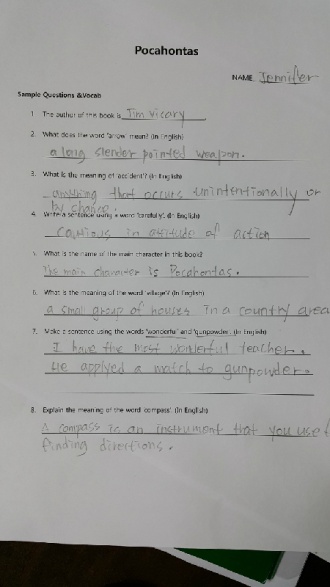 Pocahontas
NAME Jennifer
Sample Questions &Vocab
1. The author of this book is Tim Vicary
2. What does the word 'arrow' mean? (In English)
a long slender pointed weapon.
3. What is the meaning of 'accident'? (In English)
anything that occurs unintentionally or
by chance.
4. Write a sentence using a word 'carefully'. (In English)
Cautious in attitude of action
5. What is the name of the main character in this book?
The main character is Pocahontas.
6. What is the meaning of the word 'village'? (In English)
a small group of houses in a country area
7. Make a sentence using the words 'wonderful' and 'gunpowder'. (In English)
I have the most wonderful teacher.
He applyed a match to gunpowder.
8. Explain the meaning of the word 'compass'. (In English)
A compass is an instrument that you use f
finding directions.